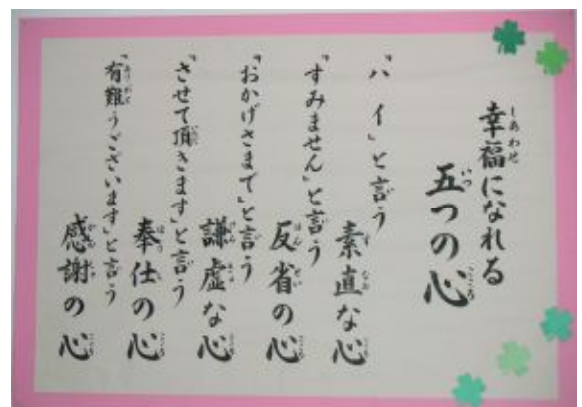 幸福になれる
五つの心
「ハイ」と言う
素直な心
「すみません」と言う
反省の心
「おかげさまで」と言う
謙虚な心
「させて頂きます」と言う
奉仕の心
「有難うございます」と言う
感謝の心